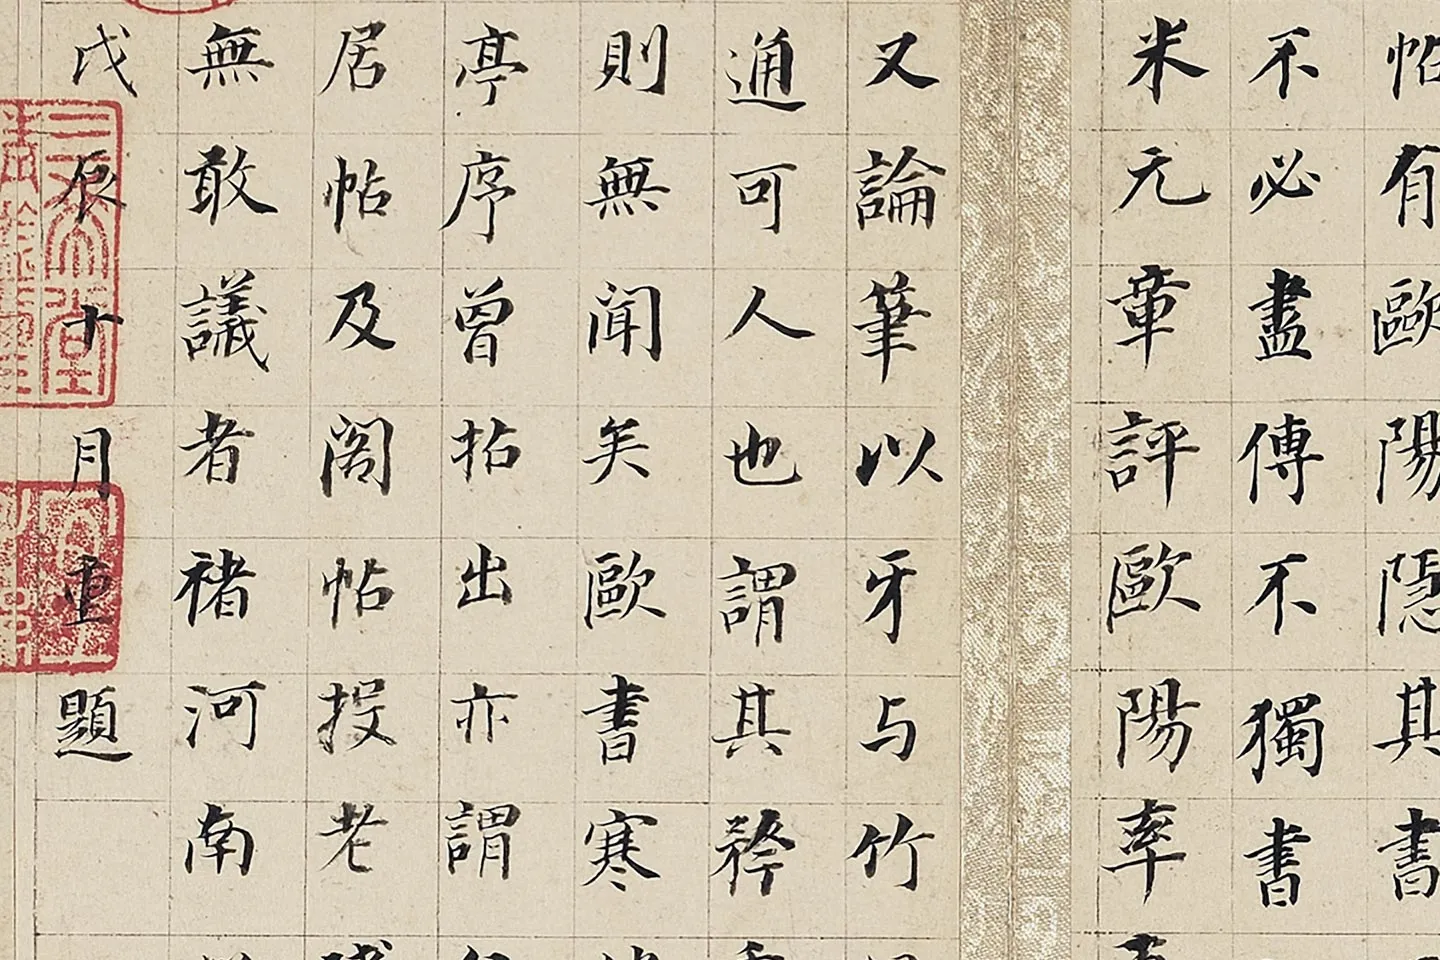 帖有歐陽隱其書
不必盡傳不獨書
米元章評歐陽率
又論筆以牙与竹
通可人也謂其矜
則無聞矣歐書寒
亭序曾拓出亦謂
居帖及閣帖投老
無敢議者褚河南
戊辰十月重題